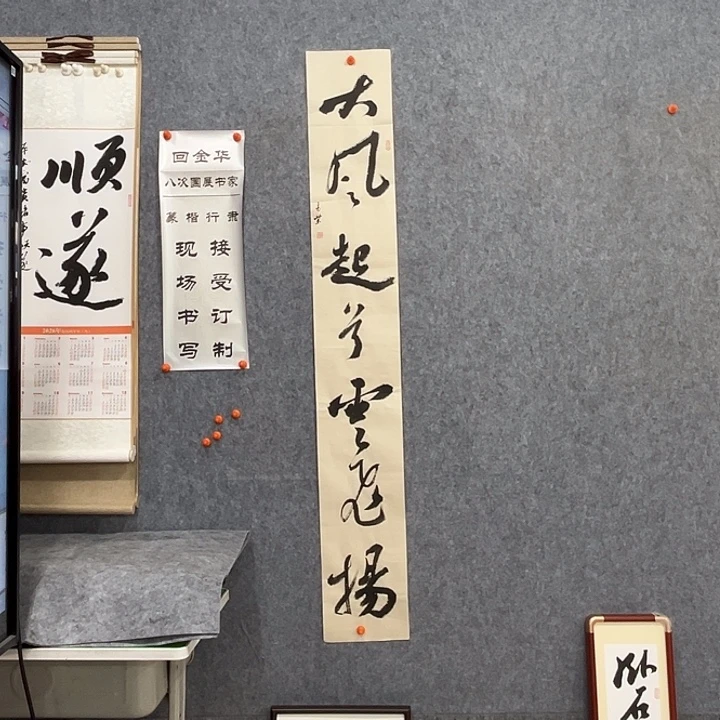 順
遂
2026
回金华
八次国展书家
篆楷行隶
现场书写
接受订制
大風起兮雲飛揚
卧石